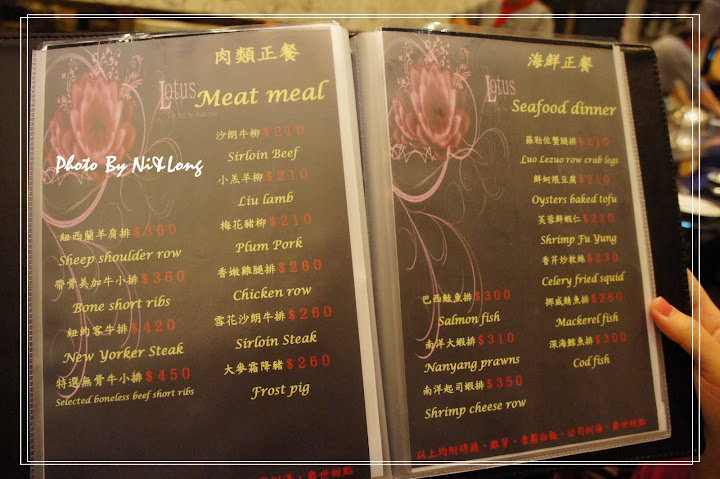 肉類正餐
Lotus
Meat meal
Photo By Ni&Long
沙朗牛柳$210
Sirloin Beef
小羔羊柳$210
Liu lamb
梅花豬柳$210
Plum Pork
香嫩雞腿排$260
Chicken row
雪花沙朗牛排$260
Sirloin Steak
大麥霜降豬$260
Frost pig
紐西蘭羊肩排$360
Sheep shoulder row
帶骨美加牛小排$360
Bone short ribs
紐約客牛排$420
New Yorker Steak
特選無骨牛小排$450
Selected boneless beef short ribs
海鮮正餐
Lotus
Seafood dinner
羅勒佐蟹腿排$210
Luo Lezuo row crab legs
鮮蚵煨豆腐$210
Oysters baked tofu
芙蓉鮮蝦仁$210
Shrimp Fu Yung
香芹炒軟絲$230
Celery fried squid
挪威鯖魚排$260
Mackerel fish
深海鱈魚排$300
Cod fish
巴西鮭魚排$300
Salmon fish
南洋大蝦排$310
Nanyang prawns
南洋起司蝦排$350
Shrimp cheese row
以上均附時蔬、